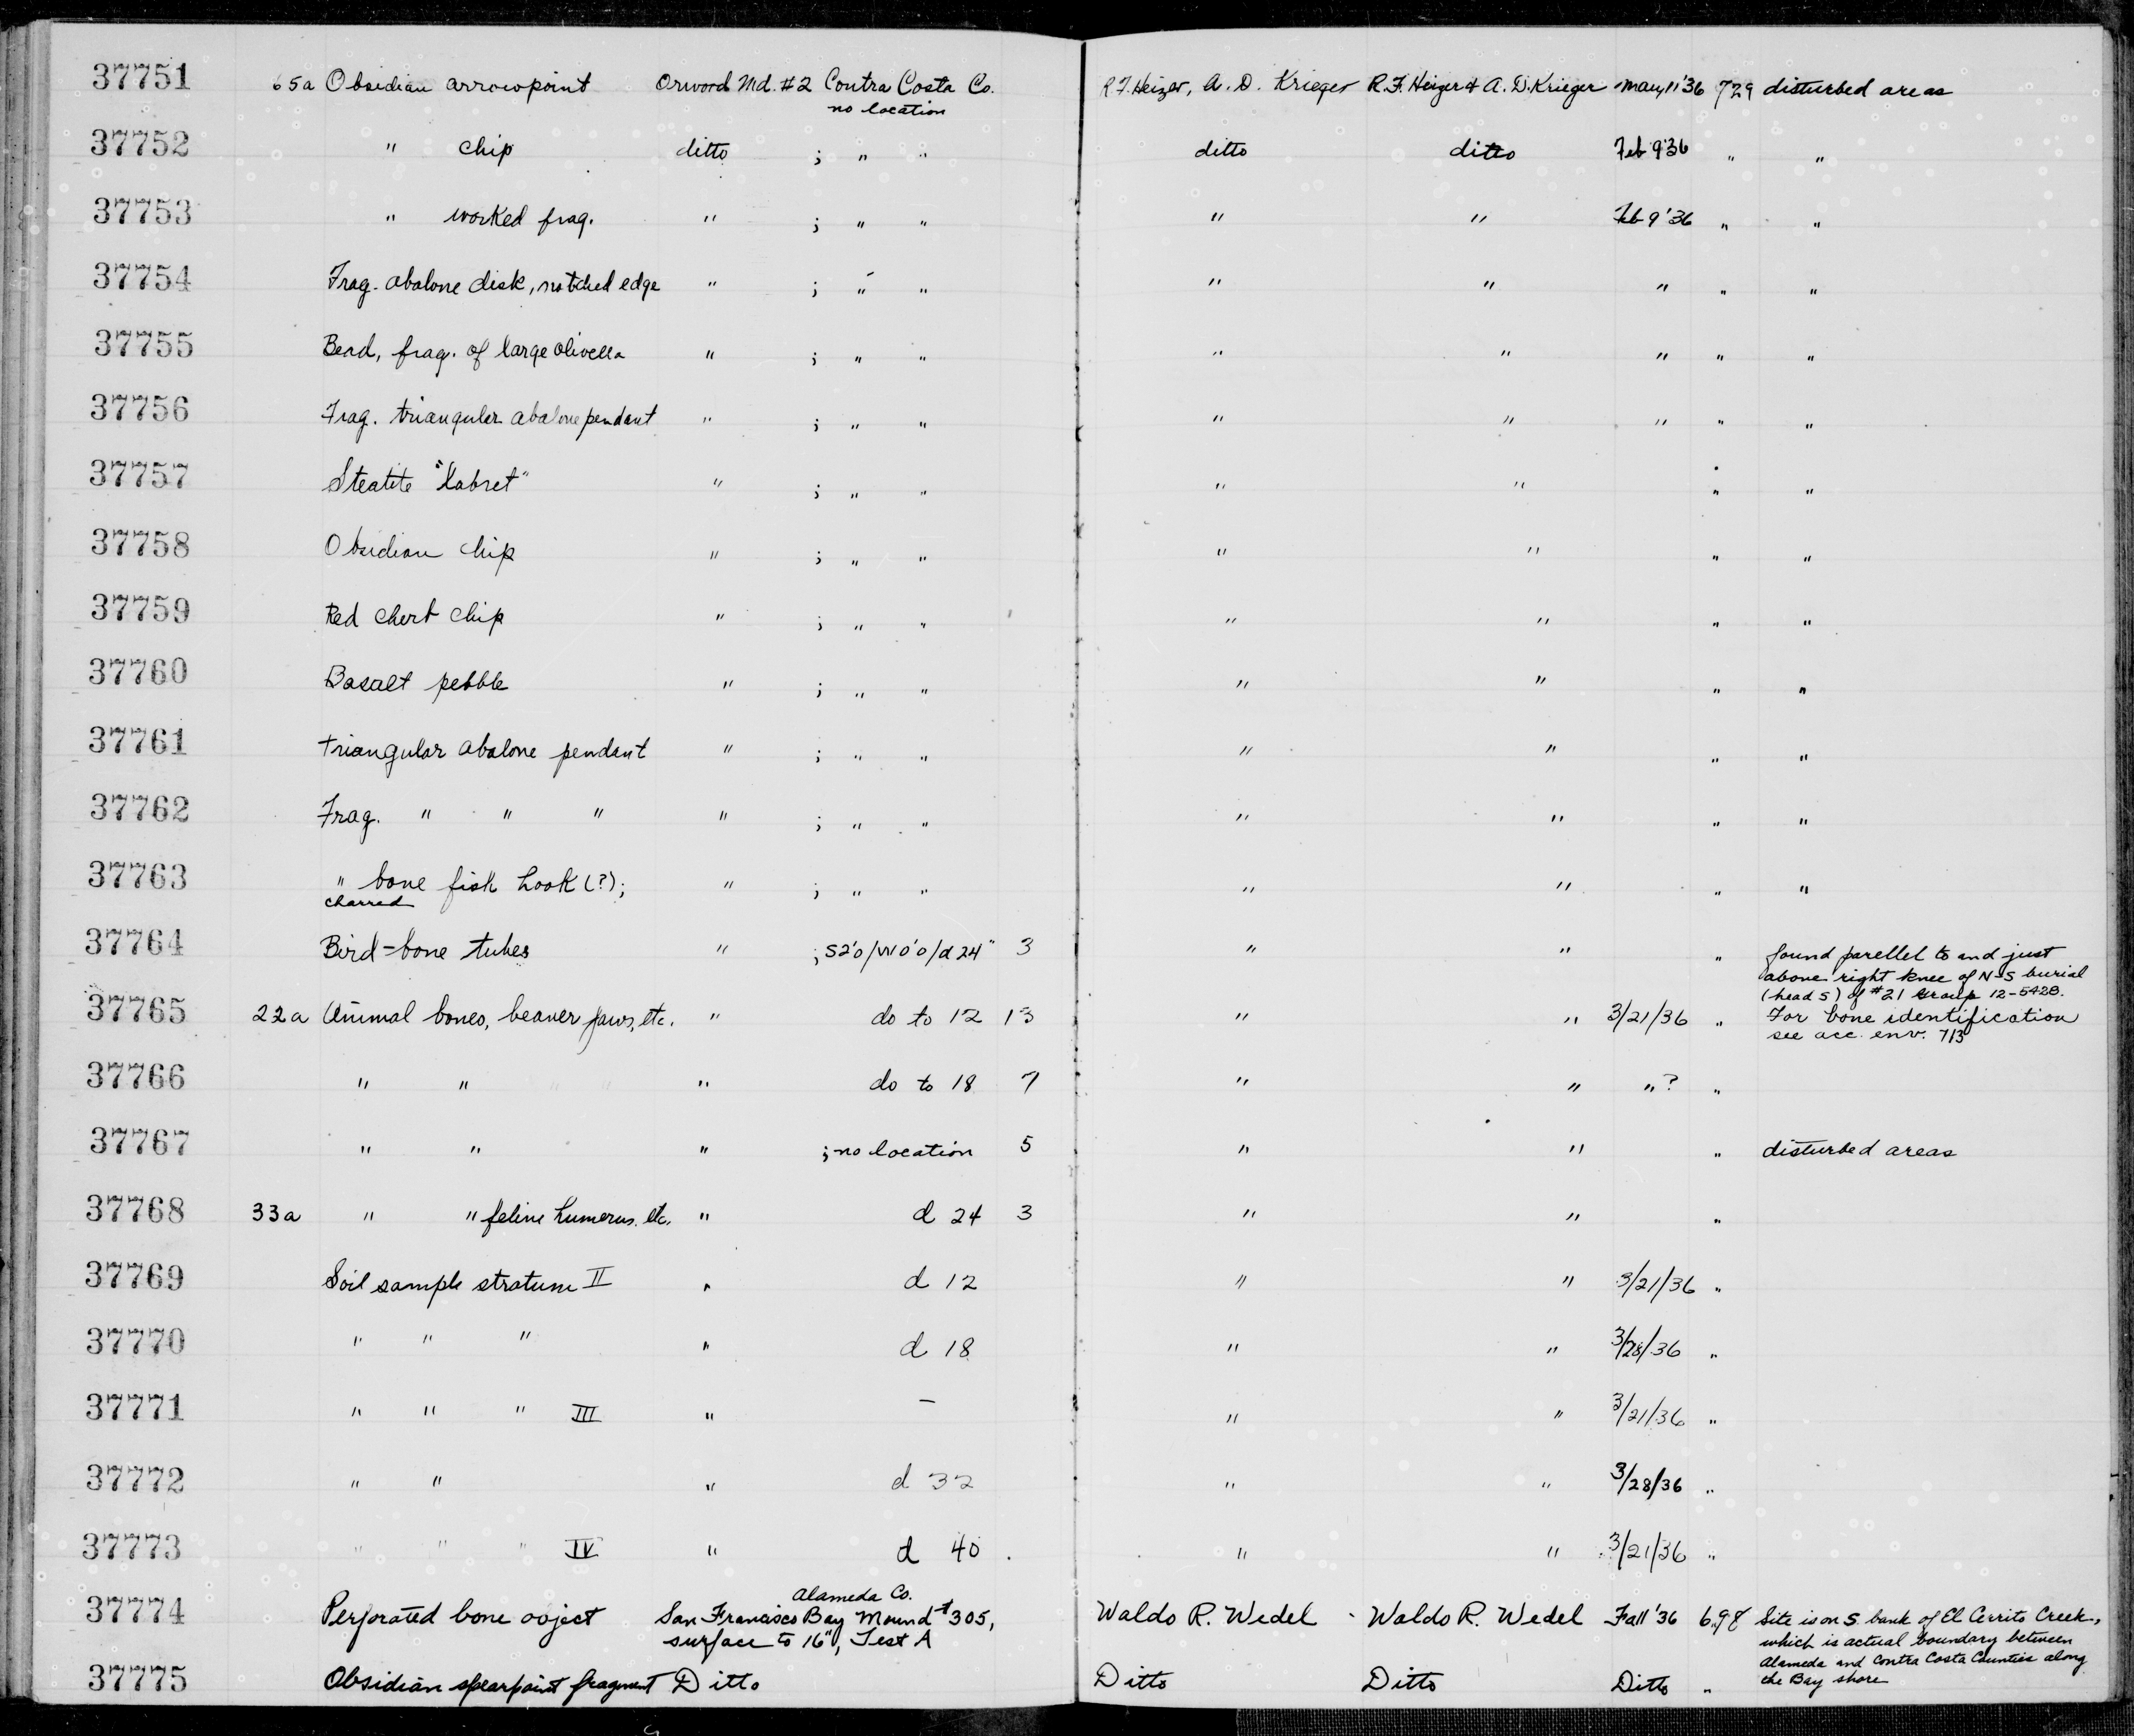 37751 65a Obsidian arrowpoint Orwood Md. #2 Contra Costa Co. R.F. Heizer, A. D. Krieger R.F. Heizer & A. D. Krieger May 11 '36 729 disturbed areas
no location
37752 " chip ditto ; " " ditto ditto Feb 9 '36 " "
37753 " worked frag. " ; " " " " Feb 9 '36 " "
37754 Frag. abalone disk, notched edge " ; " " " " " " "
37755 Bead, frag. of large olivella " ; " " " " " " "
37756 Frag. triangular abalone pendant " ; " " " " " " "
37757 Steatite "labret" " ; " " " " " "
37758 Obsidian chip " ; " " " " " "
37759 Red chert chip " ; " " " " " "
37760 Basalt pebble " ; " " " " " "
37761 triangular abalone pendant " ; " " " " " "
37762 Frag. " " " " ; " " " " " "
37763 " bone fish hook (?); " ; " " " " " "
charred
37764 Bird-bone tubes " ; S2'0/W0'0/d24" 3 " " " found parellel to and just
above right knee of N-S burial
(head S) of #21 Group 12-5428.
37765 22a Animal bones, beaver jaws, etc. " do to 12 13 " " 3/21/36 " For bone identification
see acc. env. 713
37766 " " " do to 18 7 " " " ? "
37767 " " " ; no location 5 " " " disturbed areas
37768 33a " " feline humerus. etc. " d 24 3 " " "
37769 Soil sample stratum II " d 12 " " 3/21/36 "
37770 " " " " d 18 " " 3/28/36 "
37771 " " " III " — " " 3/21/36 "
37772 " " " d 32 " " 3/28/36 "
37773 " " " IV " d 40 " " 3/21/36 "
Alameda Co.
37774 Perforated bone object San Francisco Bay Mound #305, Waldo R. Wedel Waldo R. Wedel Fall '36 698 Site is on S. bank of El Cerrito Creek,
surface to 16", Test A which is actual boundary between
Alameda and Contra Costa Counties along
37775 Obsidian spearpoint fragment Ditto Ditto Ditto Ditto " the Bay shore